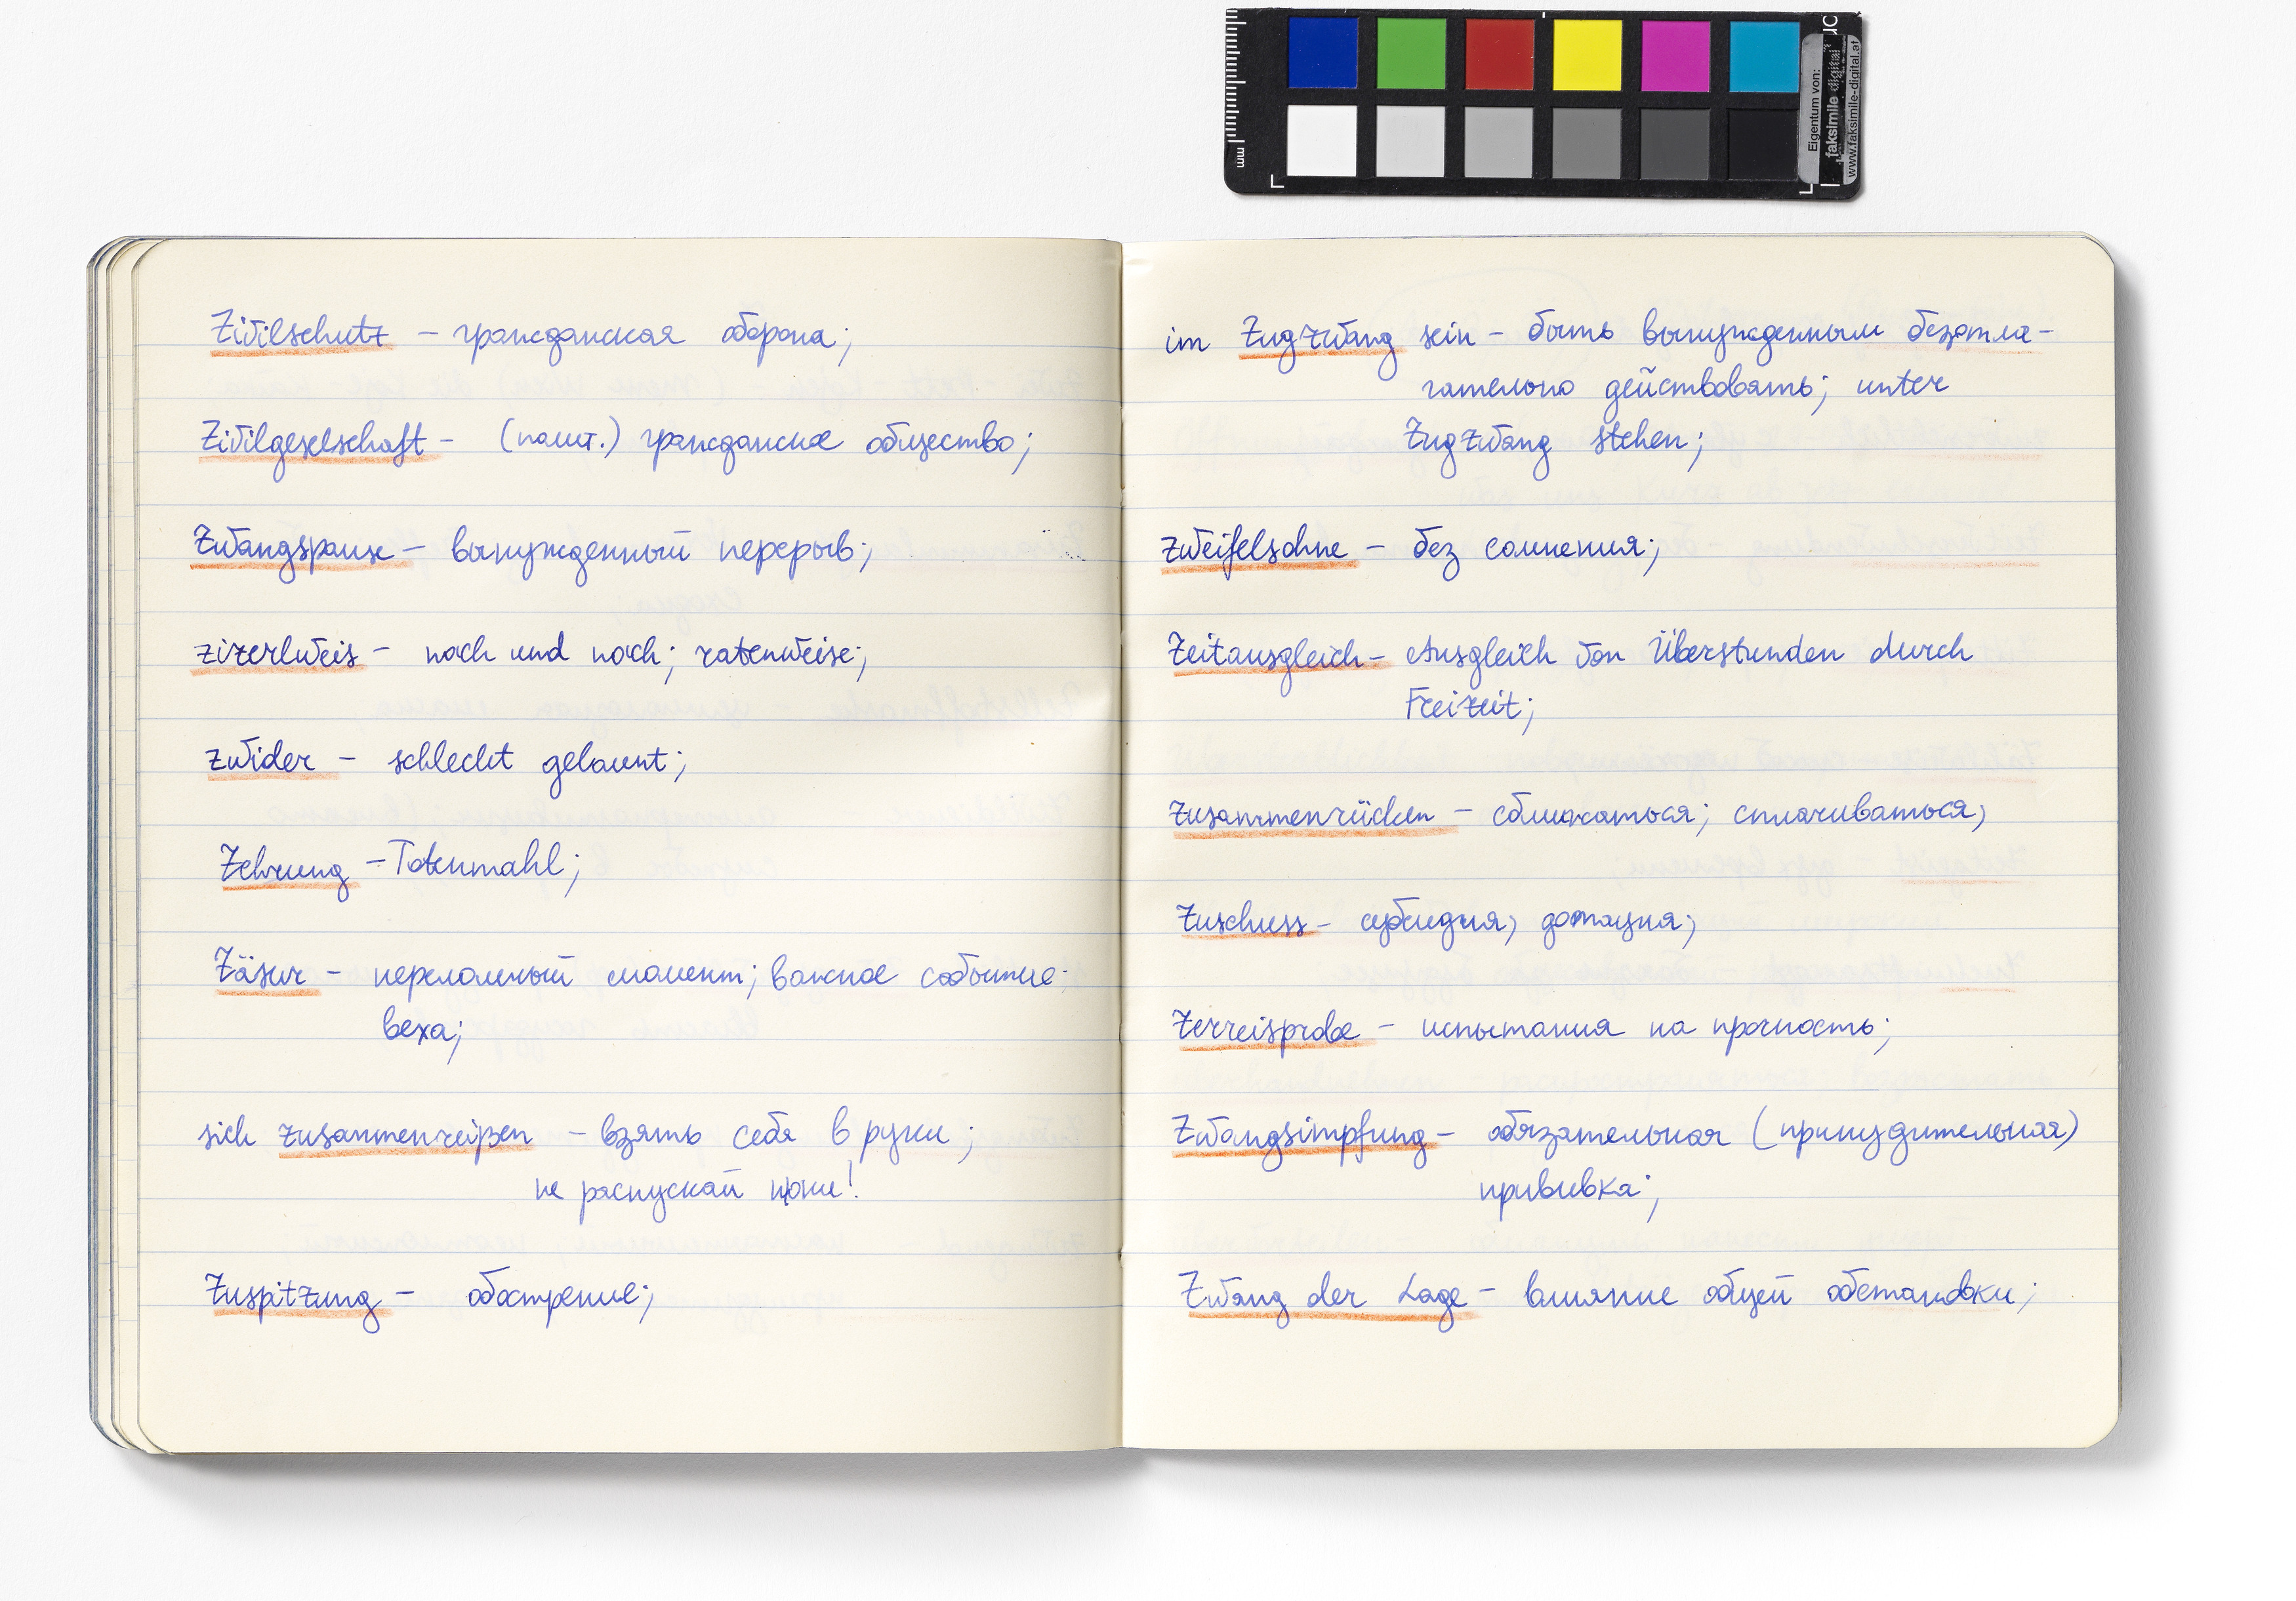 Zivilschutz – гражданская оборона;
Zivilgeselschaft – (полит.) гражданское общество;
Zwangspause – вынужденный перерыв;
zizerlweis – noch und noch; ratenweise;
zwider – schlecht gelaunt;
Zehrung – Totenmahl;
Zäsur – переломный момент; важное событие;
веха;
sich zusammenreißen – взять себя в руки;
не распускай нюни!
Zuspitzung – обострение;
im Zugzwang sein – быть вынужденным безотла-
гательно действовать; unter
Zugzwang stehen;
zweifelsohne – без сомнения;
Zeitausgleich – Ausgleich von Überstunden durch
Freizeit;
zusammenrücken – сближаться; сплачиваться;
Zuschuss – субсидия; дотация;
Zerreisprobe – испытания на прочность;
Zwangsimpfung – обязательная (принудительная)
прививка;
Zwang der Lage – влияние общей обстановки;
mm
Eigentum von:
faksimile digital
www.faksimile-digital.at